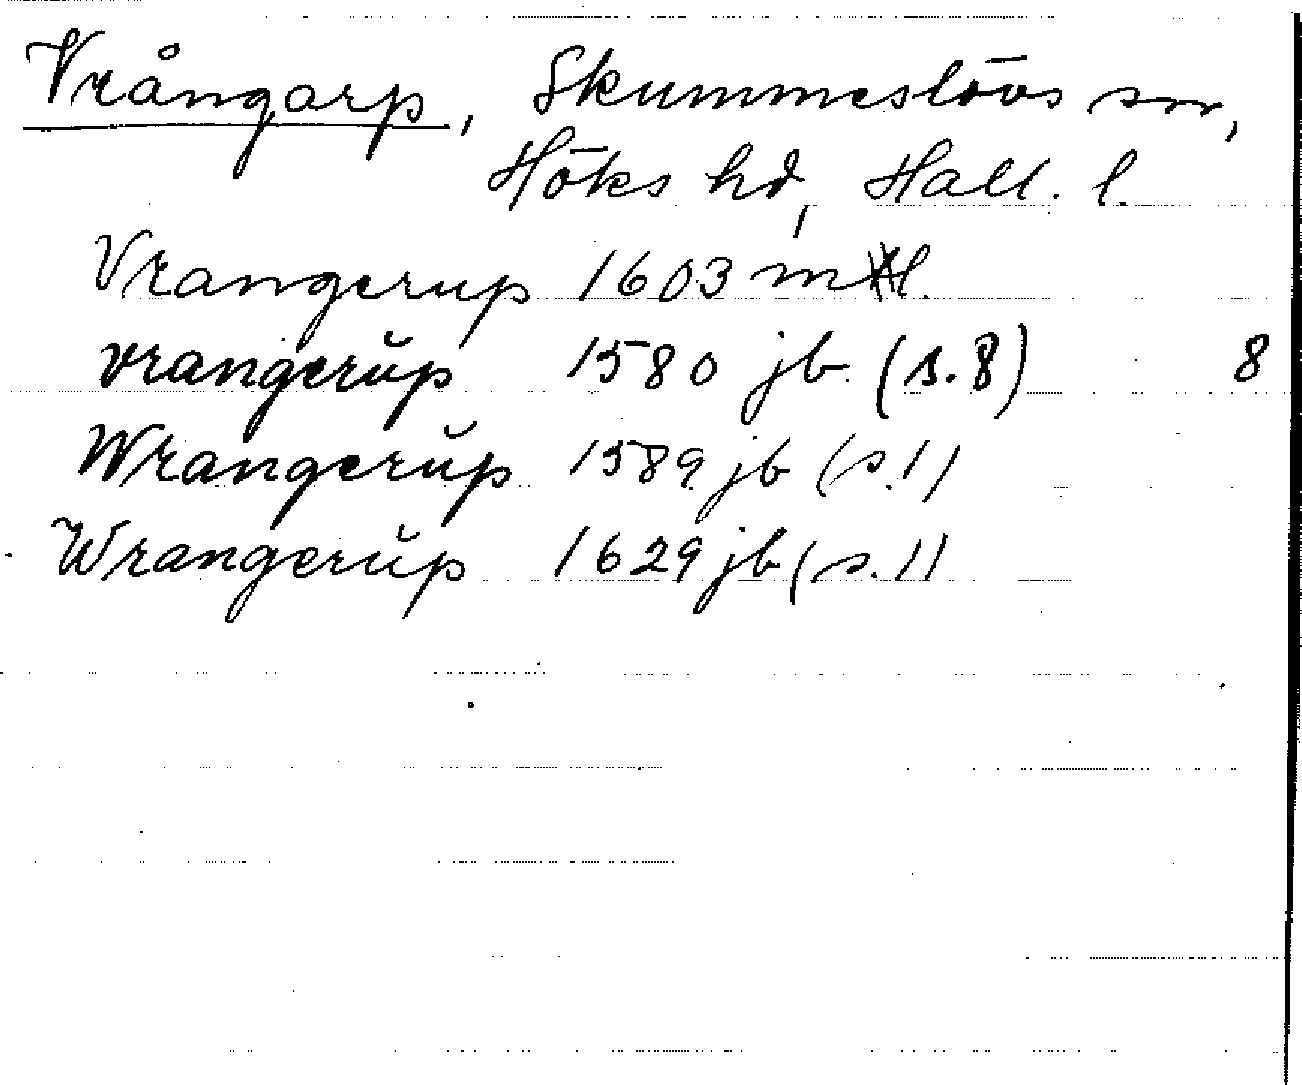 Vrångarp, Skummeslövs sn,
Höks hd, Hall. l.
Vrangerup 1603 ml.
vrangerŭp 1580 jb (s.8) 8
Wrangerŭp 1589 jb (s.1)
Wrangerŭp 1629 jb (s.1)